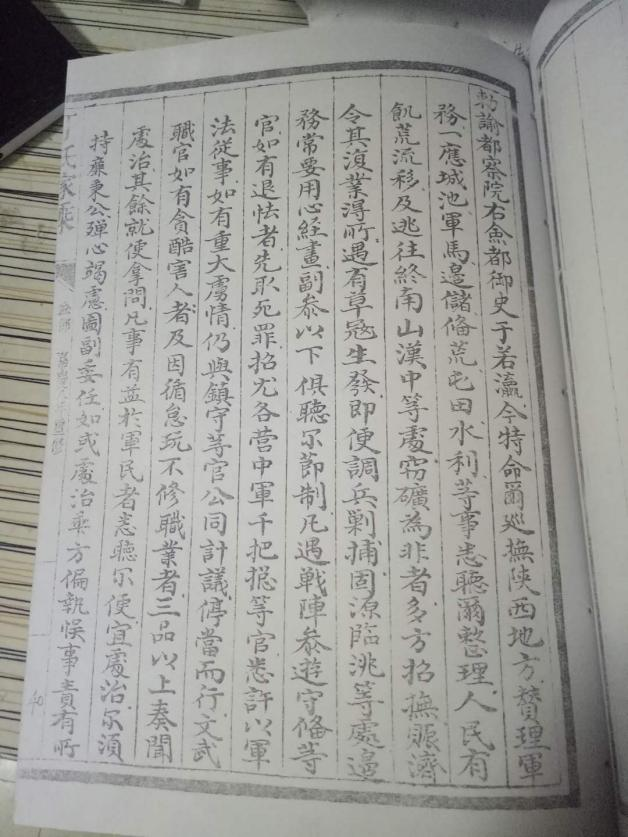 勅諭都察院右僉都御史于若瀛今特命爾巡撫陝西地方賛理軍
務一應城池軍馬邉儲俻荒屯田水利等事悉聽爾整理人民有
飢荒流移及逃往終南山漢中等處窃礦為非者多方招撫賑濟
令其復業得所遇有草冦生發即便調兵剿捕固源臨洮等處邉
務常要用心經畫副叅以下俱聽尔節制凡遇戦陣叅遊守俻等
官如有退怯者先取死罪招尤各营中軍千把揔等官悉許以軍
法從事如有重大虜情仍與鎮守等官公同計議停當而行文武
職官如有貪酷害人者及因循怠玩不修職業者三品以上奏聞
處治其餘就便拿問凡事有益於軍民者悉聽尔便宜處治尔須
持廉秉公殫心竭慮圖副委任如或處治乖方偏執悞事責有所
氏家乘